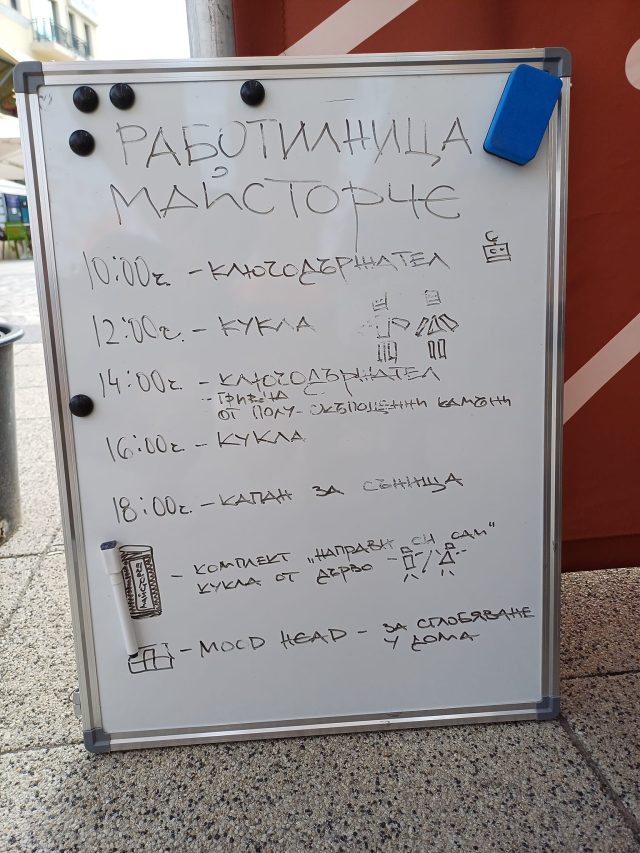 РАБОТИЛНИЦА
МАЙСТОРЧЕ
10:00г. - КЛЮЧОДЪРЖАТЕЛ
12:00г. - КУКЛА
14:00г. - КЛЮЧОДЪРЖАТЕЛ
- ГРИВНА
ОТ ПОЛУ-СКЪПОЦЕННИ КАМЪНИ
16:00г. - КУКЛА
18:00г. - КАПАН ЗА СЪНИЩА
- КОМПЛЕКТ „НАПРАВИ СИ САМ"
КУКЛА ОТ ДЪРВО -
МАЙСТОРЧЕ
- MOOD HEAD - ЗА СГЛОБЯВАНЕ
У ДОМА